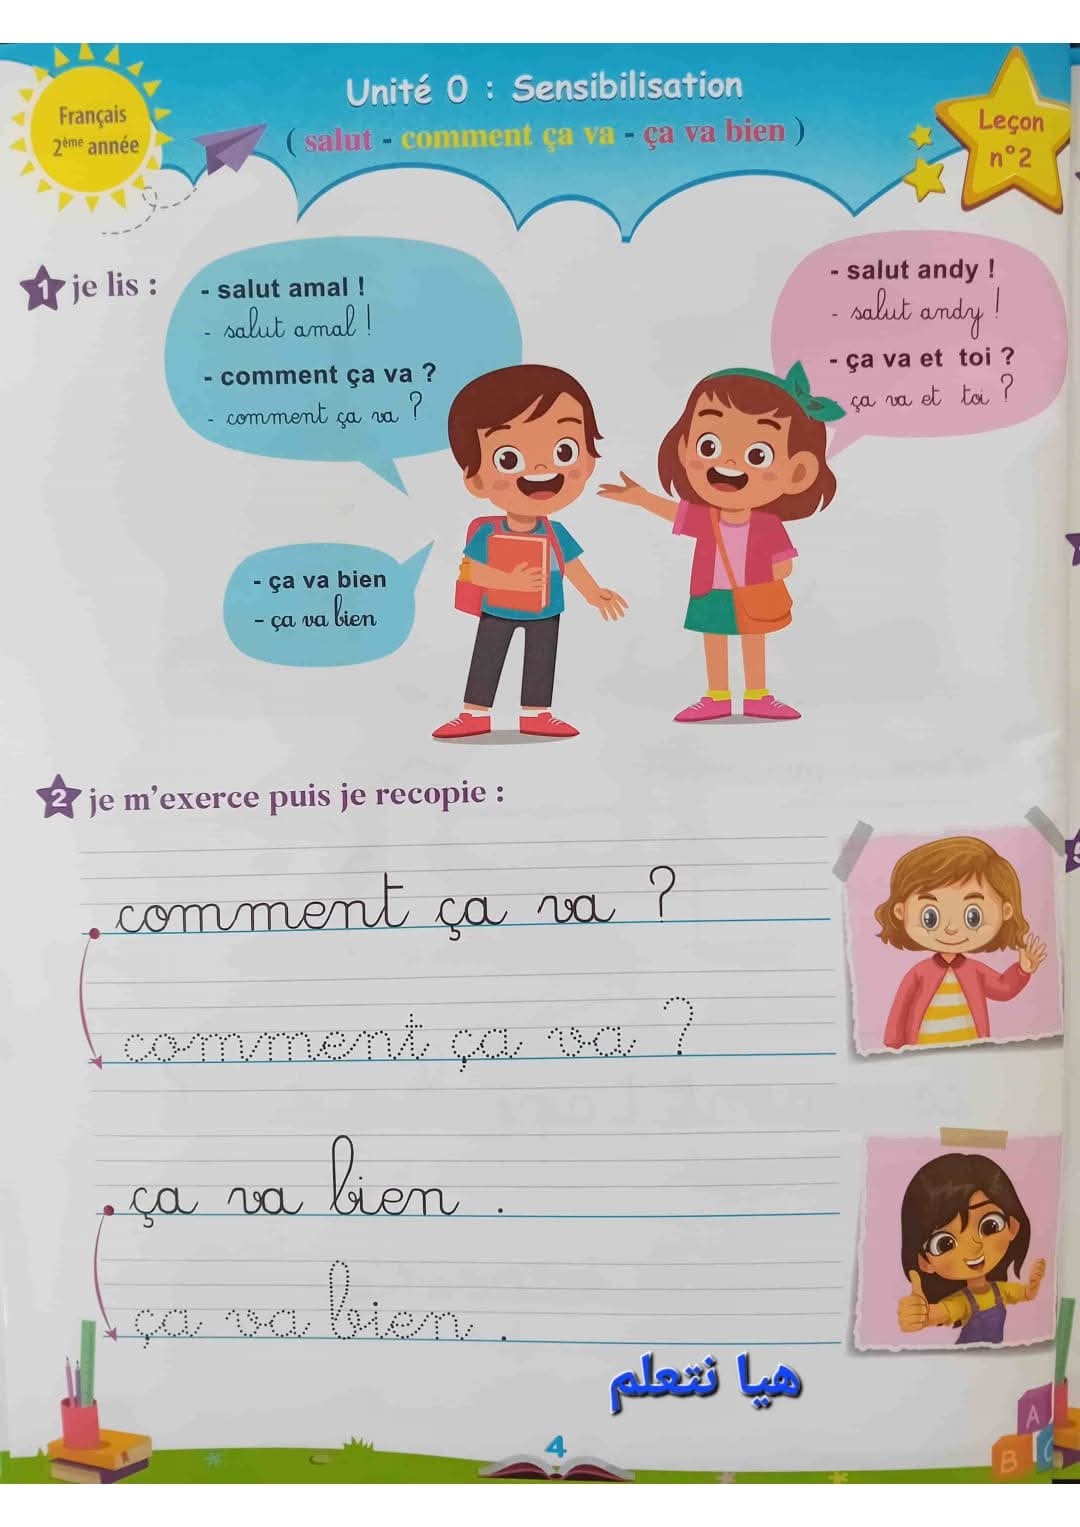 Unité 0 : Sensibilisation
( salut - comment ça va - ça va bien )
Français
2ème année
Leçon
n°2
1 je lis :
- salut amal !
- salut amal !
- comment ça va ?
- comment ça va ?
- salut andy !
- salut andy !
- ça va et toi ?
- ça va et toi ?
- ça va bien
- ça va bien
2 je m'exerce puis je recopie :
comment ça va ?
comment ça va ?
ça va bien .
ça va bien .
هيا نتعلم
4
A
B
C